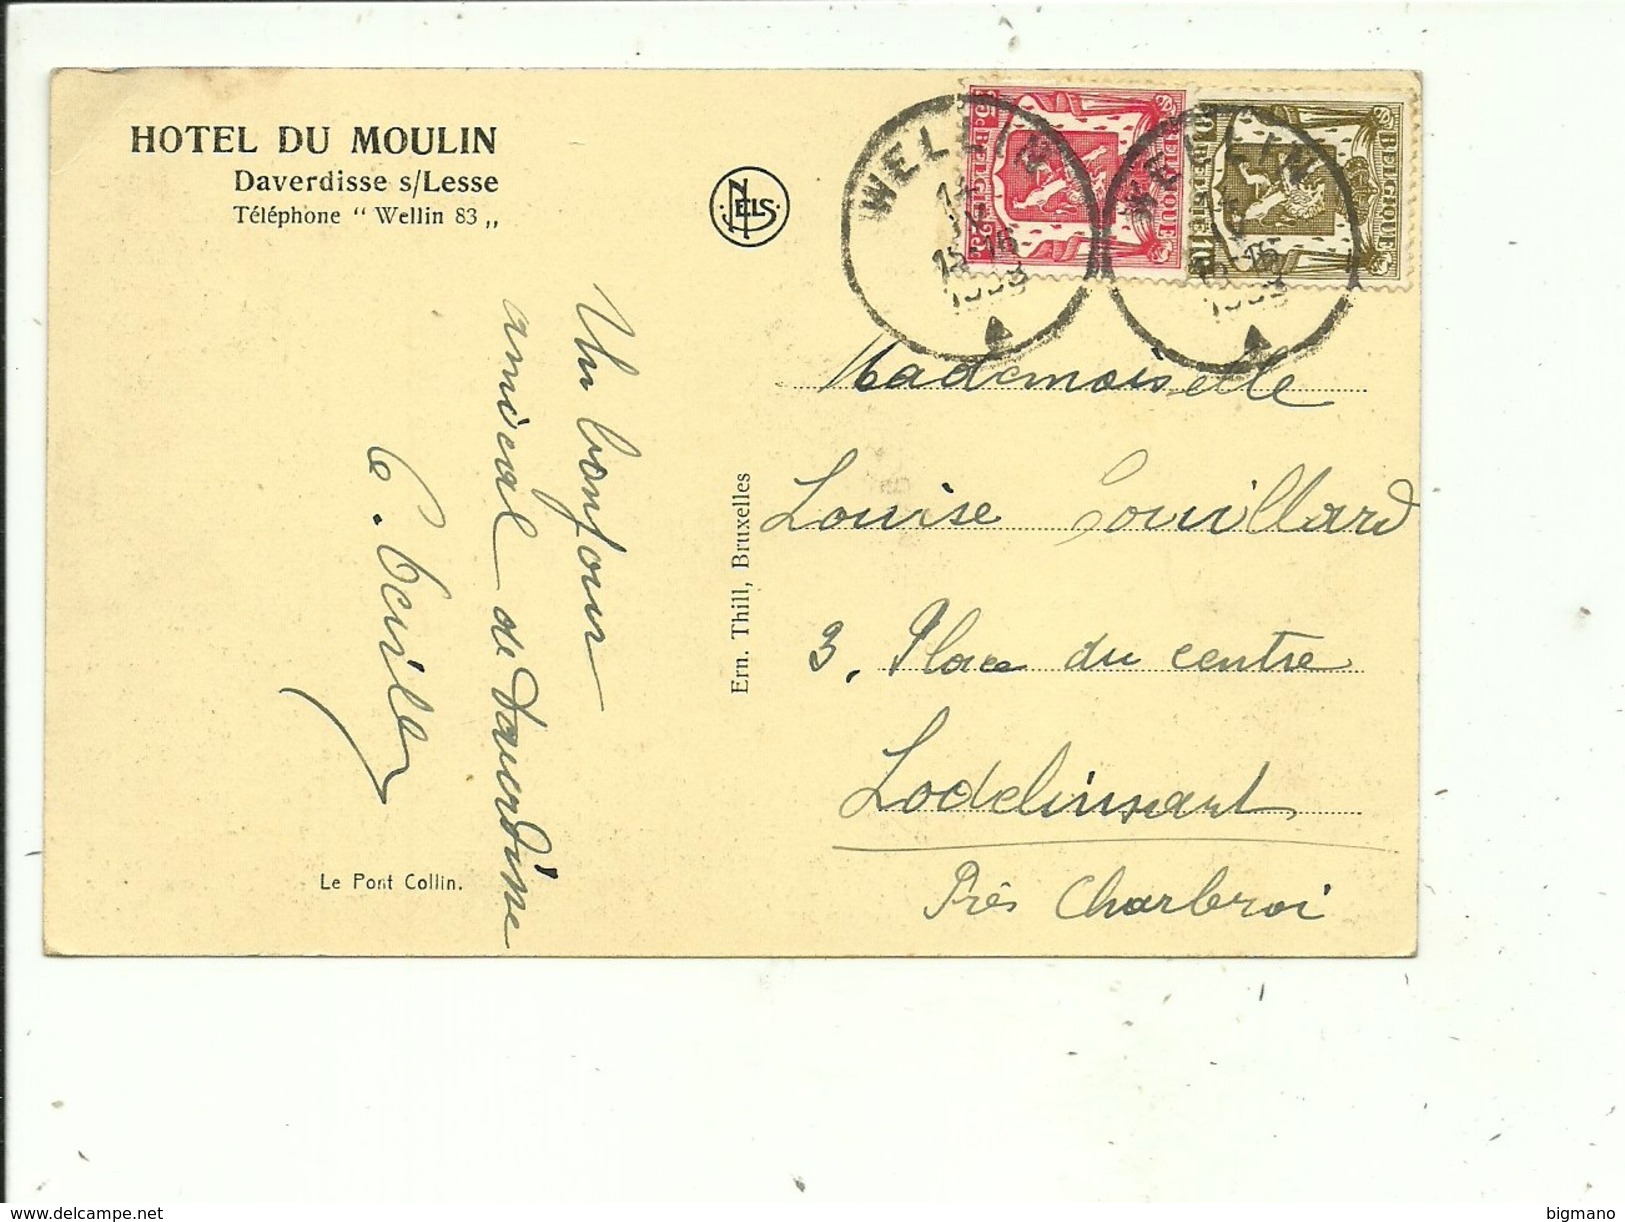 HOTEL DU MOULIN
Daverdisse s/Lesse
Téléphone “ Wellin 83 „
NELS
Un bonjour
amical de Daverdisse
Le Pont Collin.
Ern. Thill, Bruxelles
WELLIN
14
15-16
BELGIQUE
BELGIE
25c
WELLIN
15-16
BELGIQUE
BELGIE
10
Mademoiselle
Louise Couillard
3, Place du centre
Lodelinsart
Près Charleroi
www.delcampe.net
bigmano